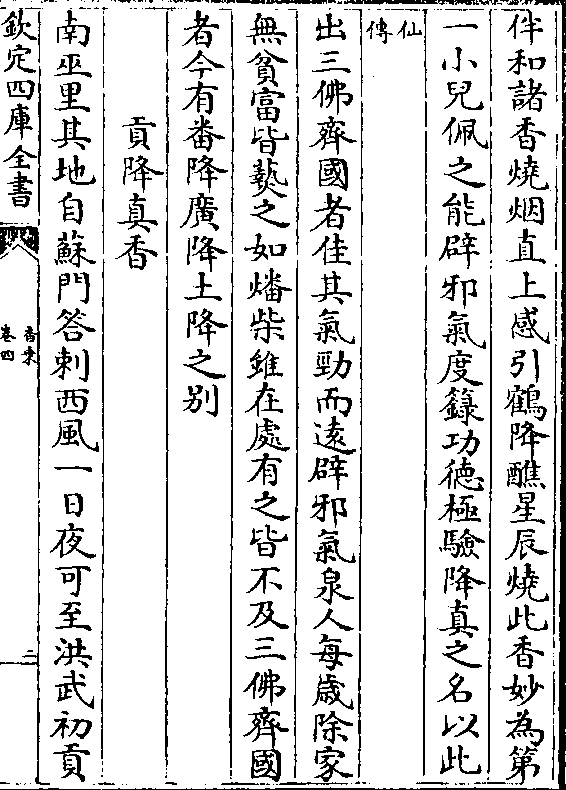 伴和諸香燒烟直上感引鶴降醮星辰燒此香妙為第
一小兒佩之能辟邪氣度籙功徳極驗降真之名以此
仙
傳
出三佛齊國者佳其氣勁而逺辟邪氣泉人每嵗除家
無貧富皆爇之如燔柴雖在處有之皆不及三佛齊國
者今有番降廣降土降之别
貢降真香
南巫里其地自蘇門答剌西風一日夜可至洪武初貢
欽定四庫全書
香乗
卷四
二